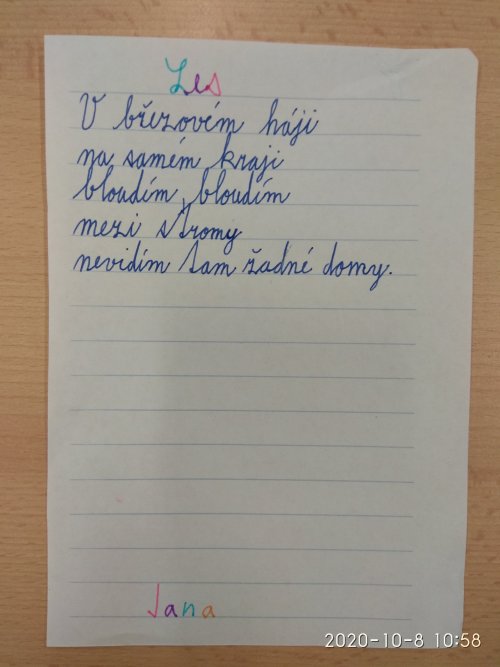 Les
V březovém háji
na samém kraji
bloudím, bloudím
mezi stromy
nevidím tam žadné domy.
Jana
2020-10-8 10:58